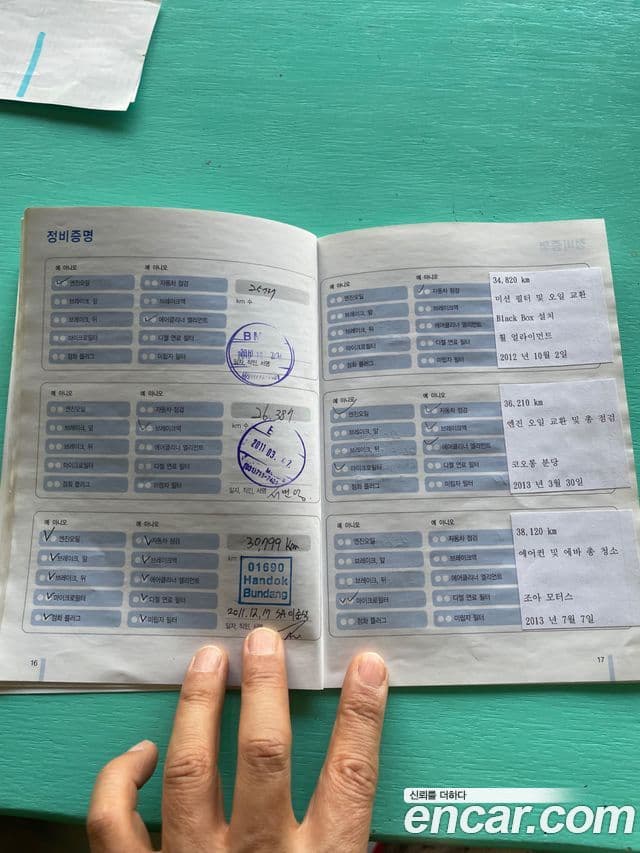 정비증명
예 아니오 예 아니오
엔진오일 자동차 점검
브레이크, 앞 브레이크액 km 수
브레이크, 뒤 에어클리너 엘리먼트
마이크로필터 디젤 연료 필터
점화 플러그 미립자 필터 일자, 직인, 서명
BM
예 아니오 예 아니오
엔진오일 자동차 점검 26,387
브레이크, 앞 브레이크액
브레이크, 뒤 에어클리너 엘리먼트
마이크로필터 디젤 연료 필터
점화 플러그 미립자 필터 일자, 직인, 서명
2011. 03.
예 아니오 예 아니오
엔진오일 자동차 점검 30,999 km
브레이크, 앞 브레이크액 km
브레이크, 뒤 에어클리너 엘리먼트
마이크로필터 디젤 연료 필터
점화 플러그 미립자 필터 일자, 직인, 서명
01690
Handok
Bundang
2011.12.17
16
예 아니오 예 아니오
엔진오일 자동차 점검
브레이크, 앞 브레이크액
브레이크, 뒤 에어클리너 엘리먼트
마이크로필터 디젤 연료 필터
점화 플러그 미립자 필터
34,820 km
미션 필터 및 오일 교환
Black Box 설치
휠 얼라이먼트
2012 년 10월 2일
예 아니오 예 아니오
엔진오일 자동차 점검
브레이크, 앞 브레이크액
브레이크, 뒤 에어클리너 엘리먼트
마이크로필터 디젤 연료 필터
점화 플러그 미립자 필터
36,210 km
엔진 오일 교환 및 총 점검
코오롱 분당
2013 년 3월 30일
예 아니오 예 아니오
엔진오일 자동차 점검
브레이크, 앞 브레이크액
브레이크, 뒤 에어클리너 엘리먼트
마이크로필터 디젤 연료 필터
점화 플러그 미립자 필터
38,120 km
에어컨 및 에바 총 청소
조아 모터스
2013 년 7월 7일
17
신뢰를 더하다
encar.com